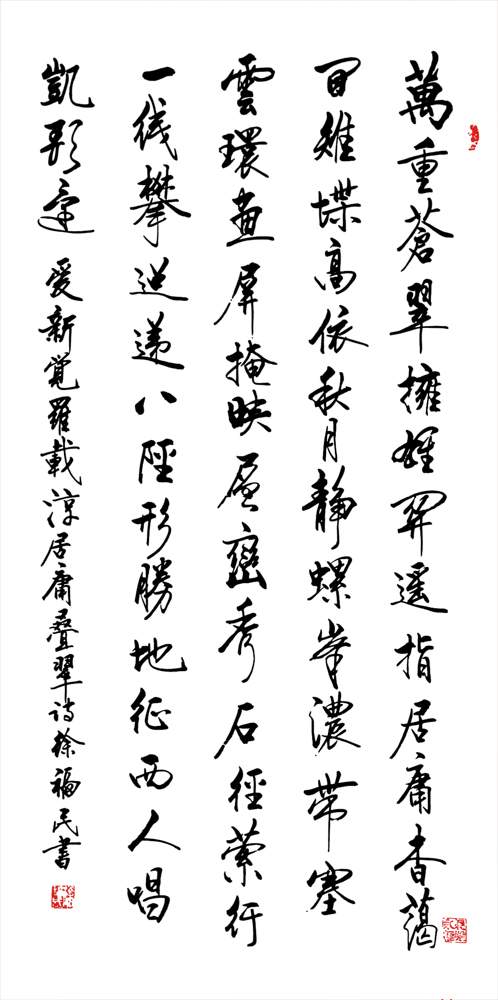 萬重蒼翠擁雄関遥指居庸杳藹
間雉堞高依秋月静螺峯濃帶塞
雲環畫屏掩映層巒秀石徑縈紆
一线攀迢遞八陘形勝地征西人唱
凱歌還 愛新覺羅載淳居庸叠翠诗徐福民書